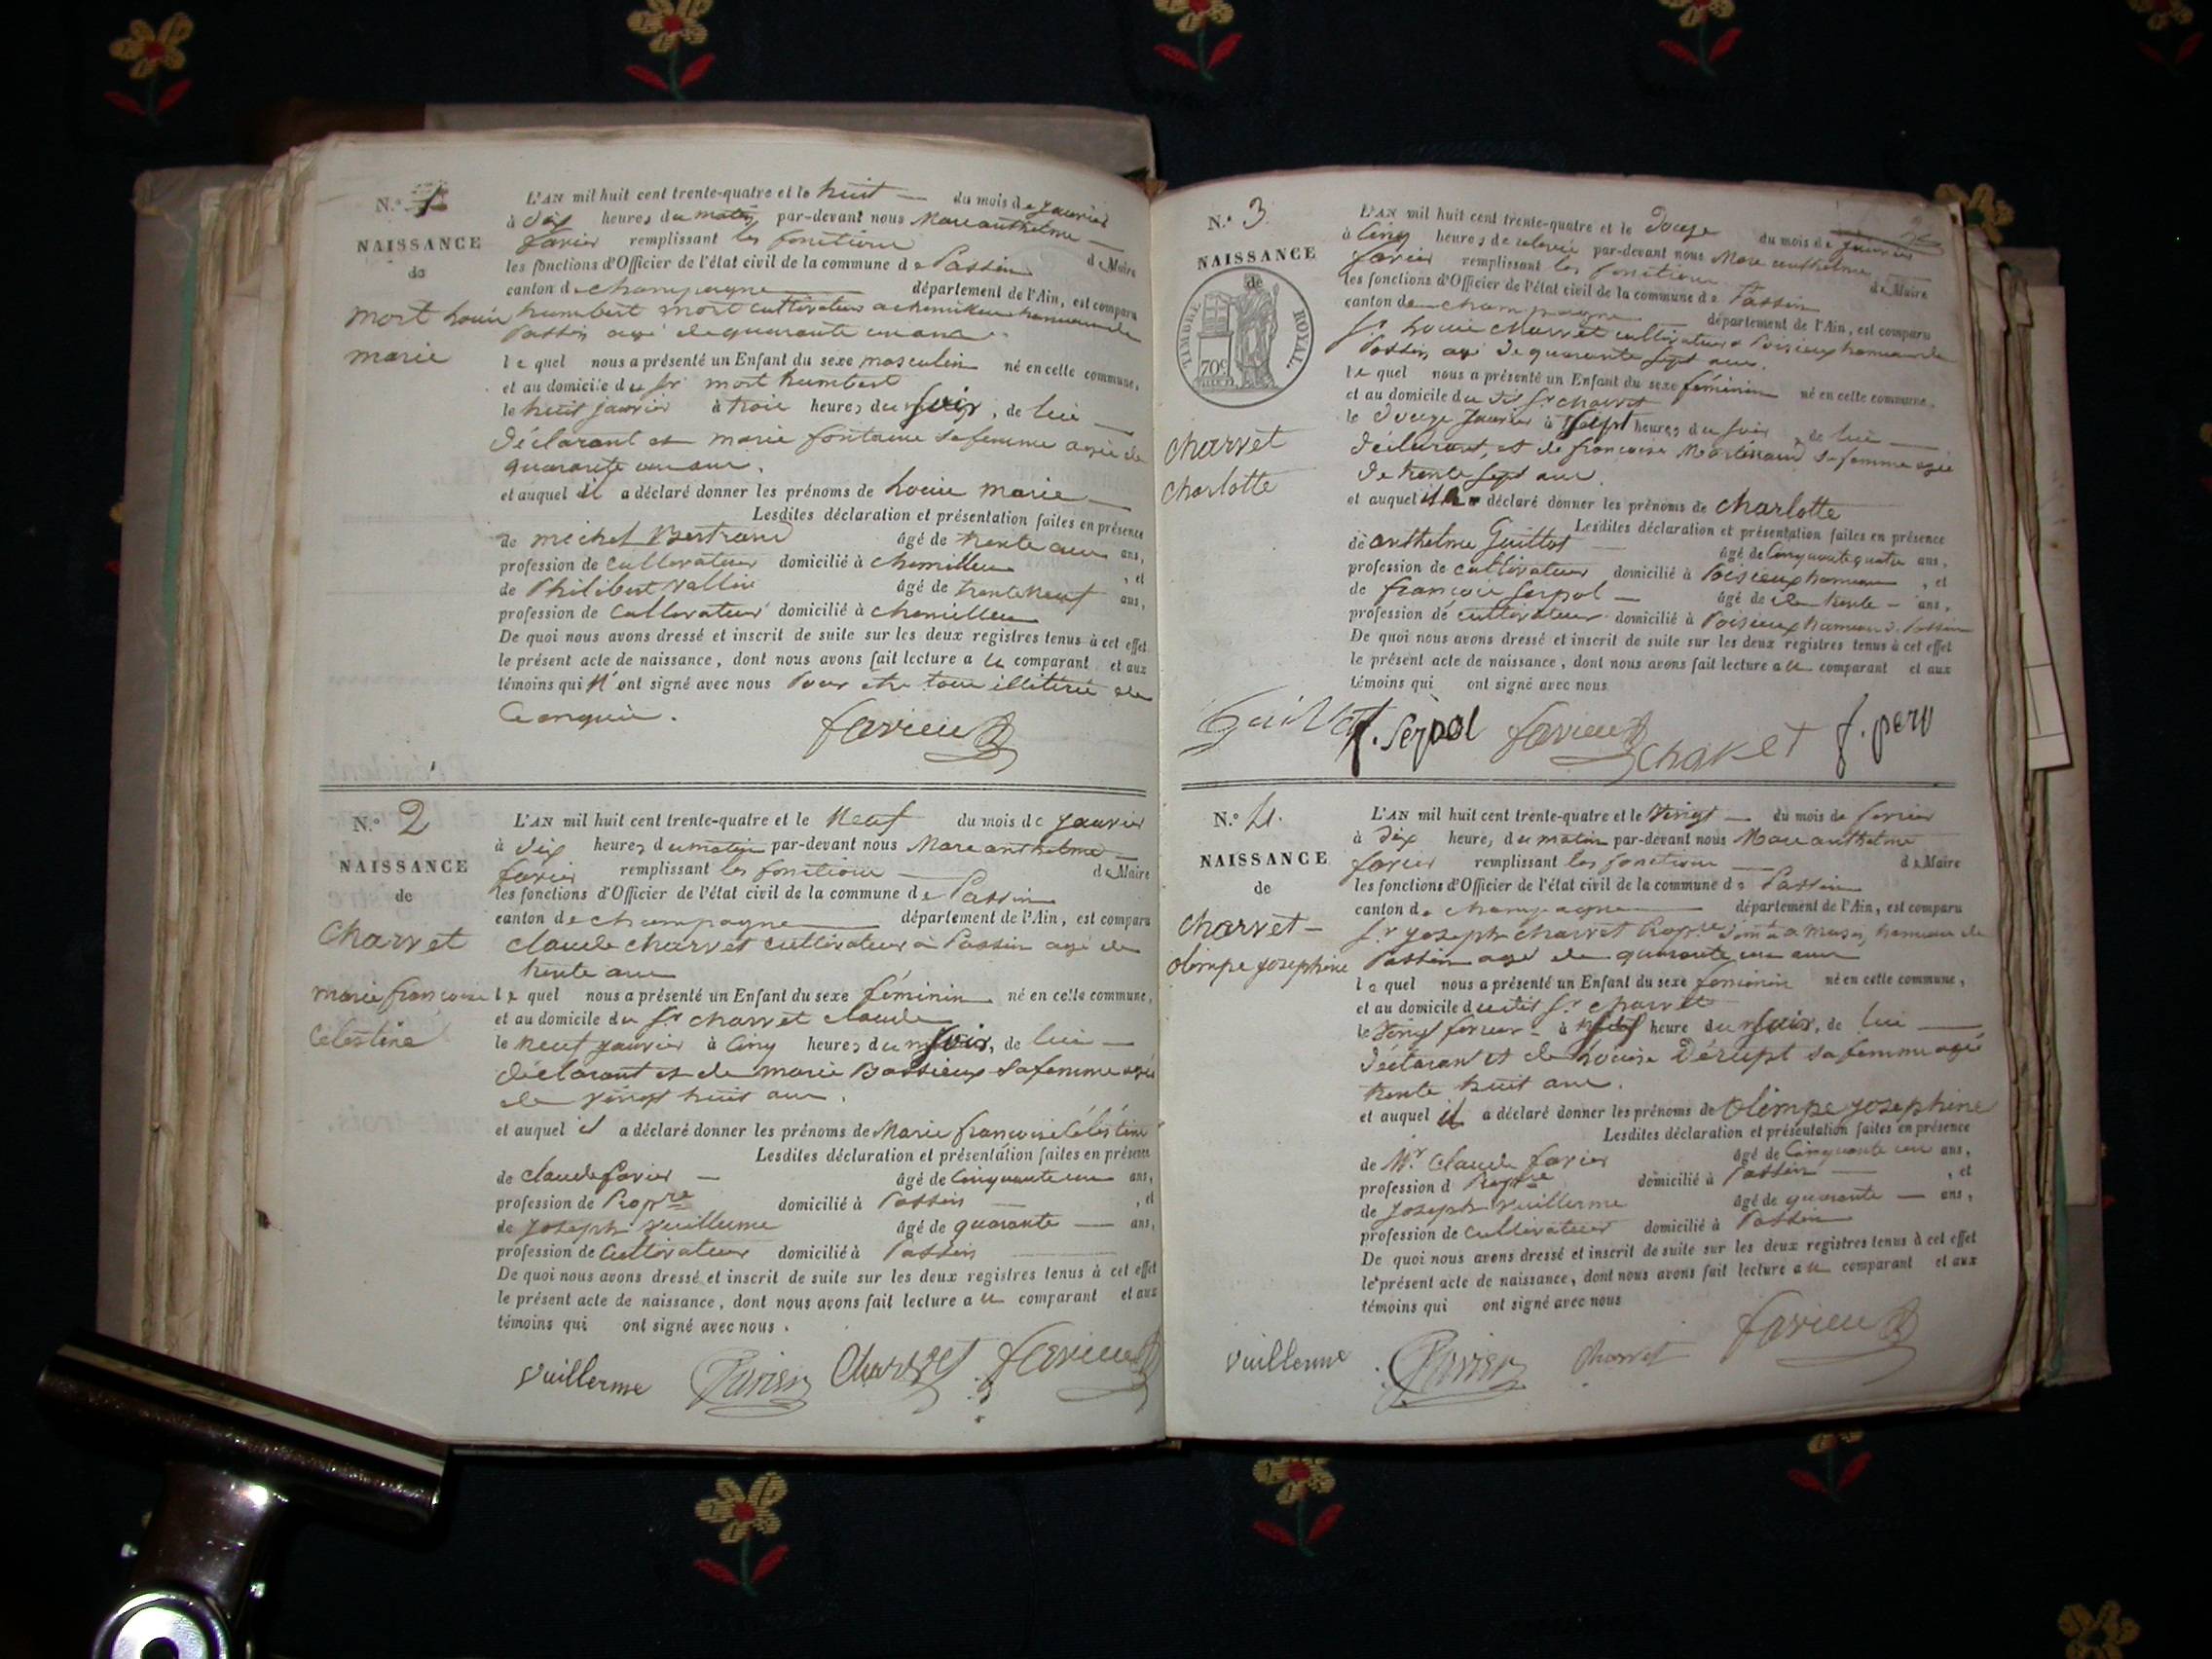 N.º 1
NAISSANCE
de
mort Louis
marie
L'AN mil huit cent trente-quatre et le huit du mois de janvier
à dix heures du matin par-devant nous Marc anthelme
favier remplissant les fonctions de Maire
les fonctions d'Officier de l'état civil de la commune de Passin
canton de champagne département de l'Ain, est comparu
humbert mort cultivateur a chemilieu hameau de
Passin agé de quarante un ans
lequel nous a présenté un Enfant du sexe masculin né en cette commune,
et au domicile du sr mort humbert
le huit janvier à trois heures du soir, de lui
déclarant et marie fontaine sa femme agée de
quarante un ans.
et auquel il a déclaré donner les prénoms de Louis marie
Lesdites déclaration et présentation faites en présence
de michel Bertrand âgé de trente ans,
profession de cultivateur domicilié à chemilieu, et
de Philibert Vallin âgé de trente neuf ans,
profession de Cultivateur domicilié à chemilieu
De quoi nous avons dressé et inscrit de suite sur les deux registres tenus à cet effet
le présent acte de naissance, dont nous avons fait lecture a u comparant et aux
témoins qui n'ont signé avec nous Pour etre tous illitérés de
ce enquis.
favier
N.º 2
NAISSANCE
de
Charvet
marie françoise
Célestine
L'AN mil huit cent trente-quatre et le Neuf du mois de janvier
à dix heures du matin par-devant nous Marc anthelme
favier remplissant les fonctions de Maire
les fonctions d'Officier de l'état civil de la commune de Passin
canton de champagne département de l'Ain, est comparu
claude charvet cultivateur à Passin agé de
trente ans
lequel nous a présenté un Enfant du sexe féminin né en cette commune,
et au domicile du sr charvet claude
le neuf janvier à cinq heures du soir, de lui
déclarant et de marie Bassieux sa femme agée
de vingt huit ans.
et auquel il a déclaré donner les prénoms de Marie françoise Célestine
Lesdites déclaration et présentation faites en présence
de claude favier âgé de Cinquante un ans,
profession de Propre domicilié à Passin, et
de joseph vuillerme âgé de quarante ans,
profession de Cultivateur domicilié à Passin
De quoi nous avons dressé et inscrit de suite sur les deux registres tenus à cet effet
le présent acte de naissance, dont nous avons fait lecture a u comparant et aux
témoins qui ont signé avec nous.
Vuillerme favier Charvet favier
N.º 3
NAISSANCE
de
TIMBRE ROYAL
70c
charvet
charlotte
L'AN mil huit cent trente-quatre et le douze du mois de janvier
à cinq heures de relevée par-devant nous Marc anthelme
favier remplissant les fonctions de Maire
les fonctions d'Officier de l'état civil de la commune de Passin
canton de champagne département de l'Ain, est comparu
sr Louis charvet cultivateur a Poisieux hameau de
Passin agé de quarante sept ans.
lequel nous a présenté un Enfant du sexe féminin né en cette commune,
et au domicile du dit sr charvet
le douze janvier à sept heures du soir, de lui
déclarant, et de françoise Martinand sa femme agée
de trente sept ans.
et auquel il a déclaré donner les prénoms de charlotte
Lesdites déclaration et présentation faites en présence
de anthelme Guillot âgé de Cinquante quatre ans,
profession de cultivateur domicilié à Poisieux hameau, et
de françois serpol âgé de trente ans,
profession de cultivateur domicilié à Poisieux hameau d. Passin
De quoi nous avons dressé et inscrit de suite sur les deux registres tenus à cet effet
le présent acte de naissance, dont nous avons fait lecture a u comparant et aux
témoins qui ont signé avec nous
f. Serpol favier chaket
N.º 4.
NAISSANCE
de
charvet
olimpe josephine
L'AN mil huit cent trente-quatre et le Vingt du mois de fevrier
à dix heures du matin par-devant nous Marc anthelme
favier remplissant les fonctions de Maire
les fonctions d'Officier de l'état civil de la commune de Passin
canton de champagne département de l'Ain, est comparu
sr joseph charvet Propre a hameau de
Passin agé de quarante un ans
lequel nous a présenté un Enfant du sexe feminin né en cette commune,
et au domicile du dit sr charvet
le vingt fevrier à heure du soir, de lui
déclarant et de Louise Dérupt sa femme agée
trente huit ans.
et auquel il a déclaré donner les prénoms de Olimpe josephine
Lesdites déclaration et présentation faites en présence
de Mr. Claude favier âgé de Cinquante un ans,
profession d Propre domicilié à Passin, et
de joseph vuillerme âgé de quarante ans,
profession de Cultivateur domicilié à Passin
De quoi nous avons dressé et inscrit de suite sur les deux registres tenus à cet effet
le présent acte de naissance, dont nous avons fait lecture a u comparant et aux
témoins qui ont signé avec nous
favier
Vuillerme favier Charvet